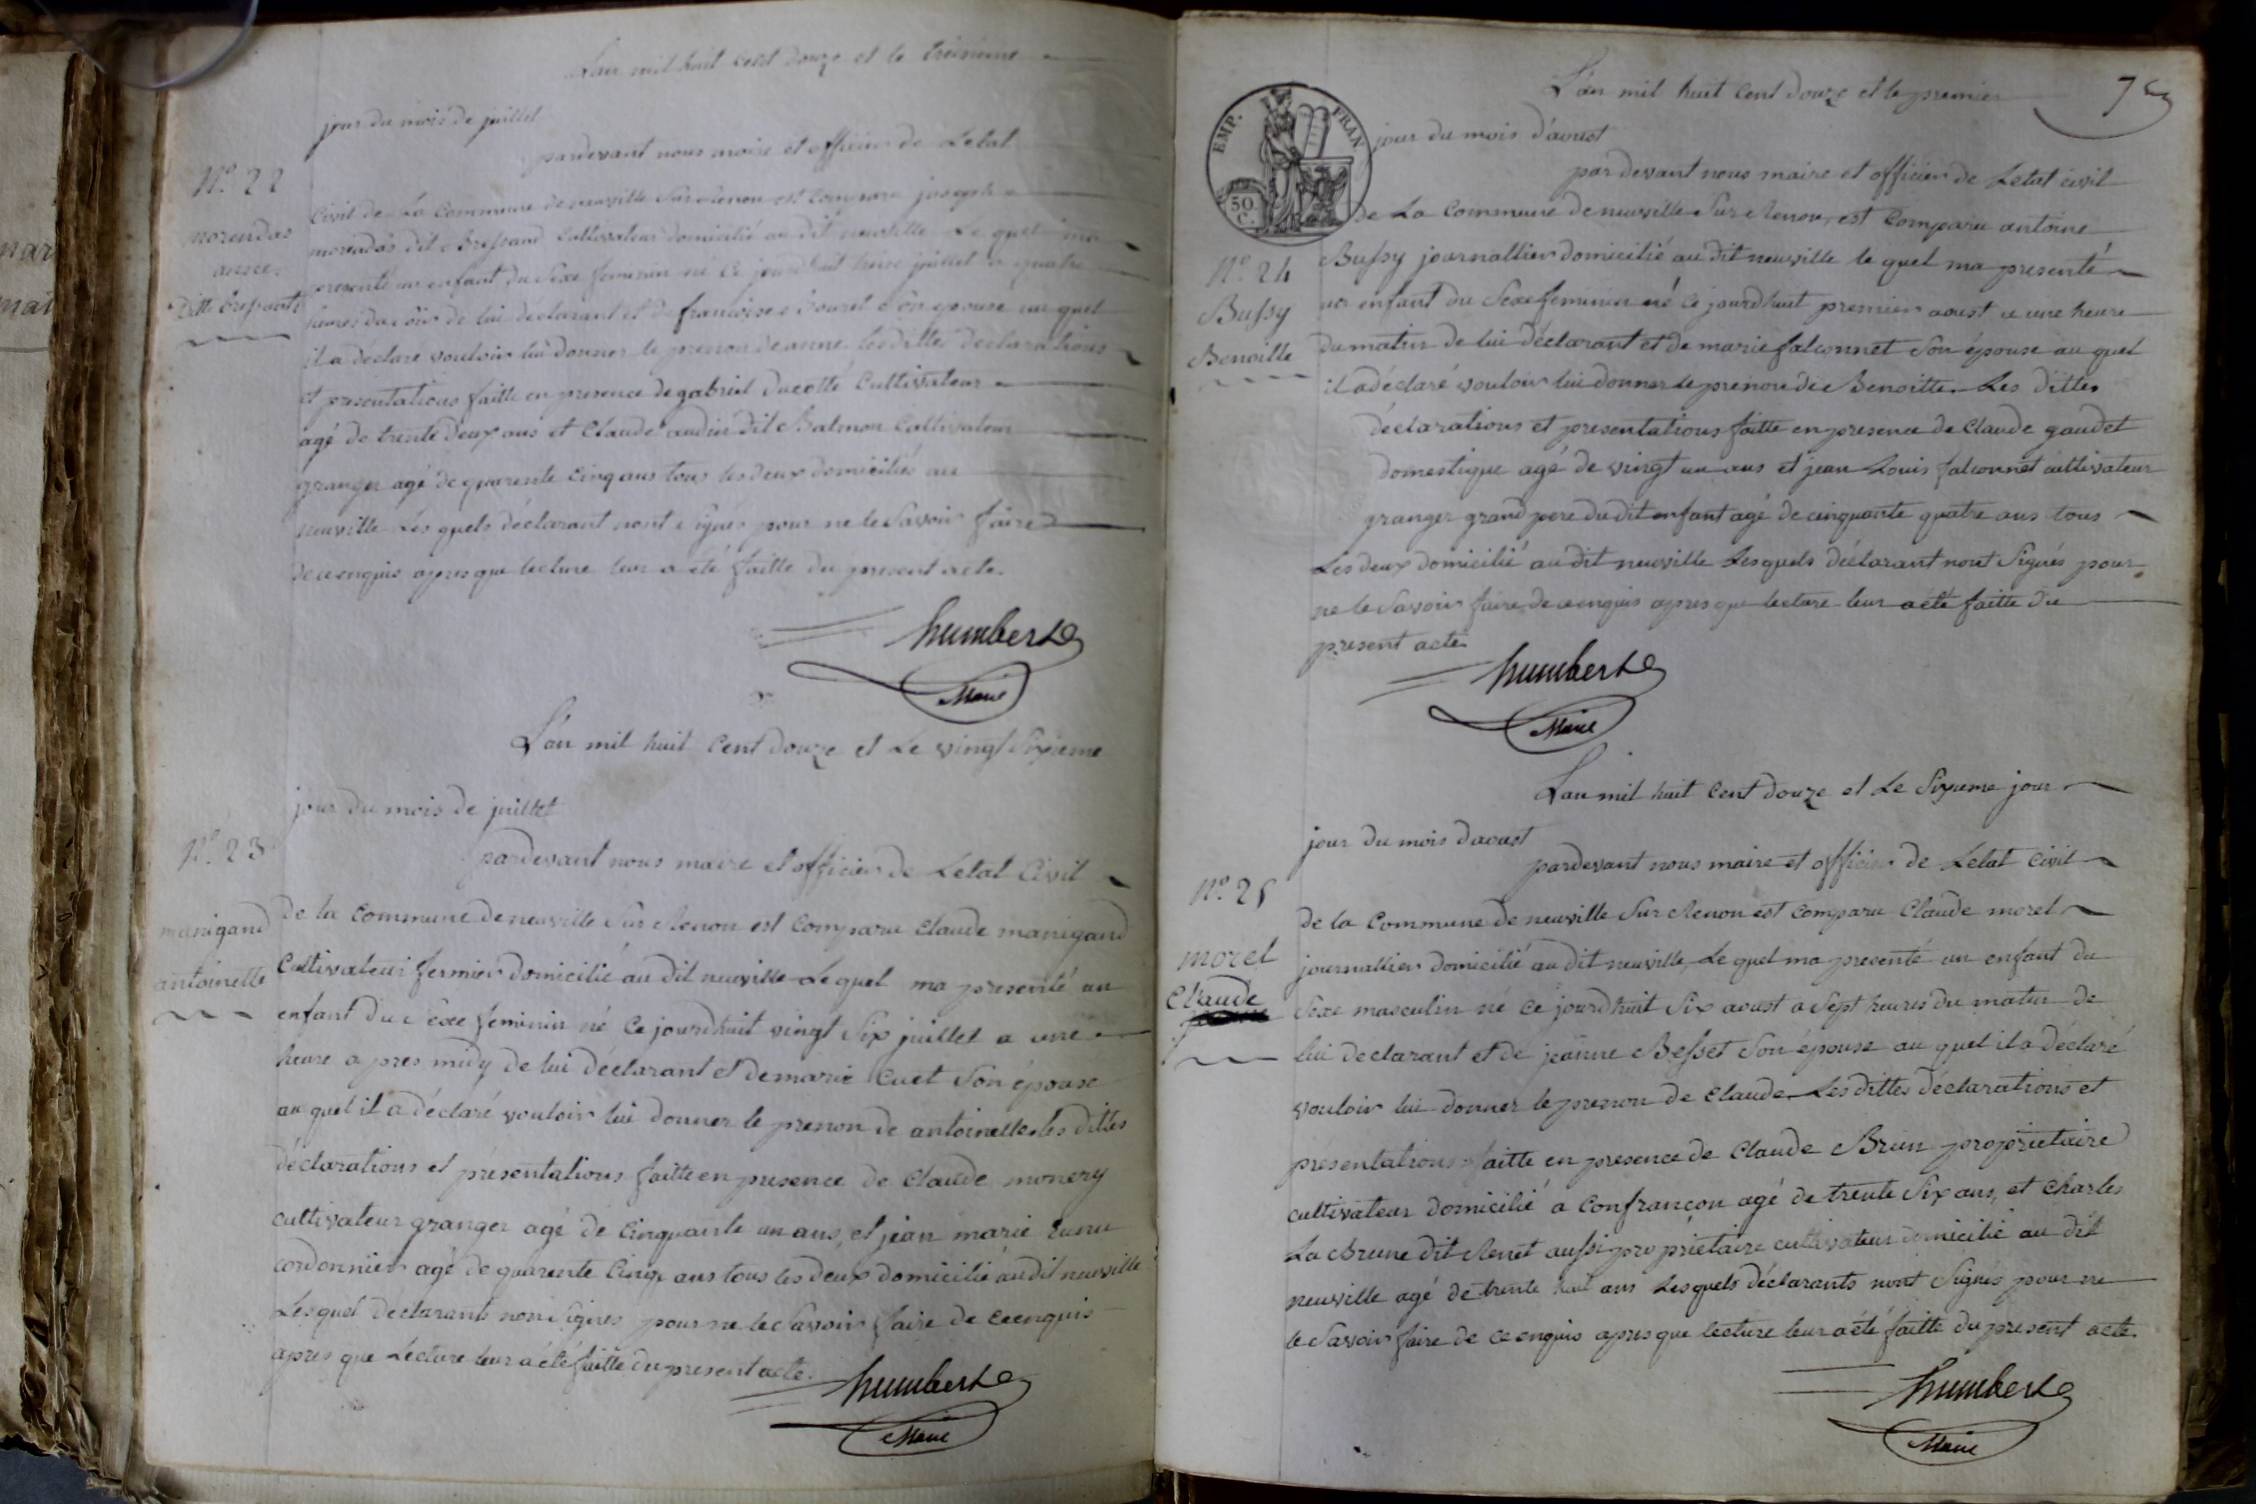 L'an mil huit cent douze et le treizieme
jour du mois de juillet
pardevant nous maire et officier de Letat
N.° 22
civil de La Commune de neuville Sur Renon est comparu joseph
morandas
morandas dit Bressand Cultivateur domicilié au dit neuville Le quel ma
anne
presenté un enfant du Sexe feminin né ce jourdhuit treize juillet a quatre
ditte bressande
heures du soir de lui déclarant et de francoise bouret Son epouse au quel
il a déclaré vouloir lui donner le prenon de anne lesdittes déclarations
et presentations faitte en presence de gabriel ducotté Cultivateur
agé de trente deux ans et Claude audin dit Balmon Cultivateur
granger agé de quarente cinq ans tous les deux domiciliés au
neuville Les quels déclarant nont signés pour ne le Savoir faire
de ce enquis apres que lecture leur a été faitte du present acte.
humbert
Maire
L'an mil huit Cent douze et Le vingt Sixieme
jour du mois de juillet
N.° 23
pardevant nous maire et officier de Letat Civil
manigand
de la Commune de neuville Sur Renon est Comparu Claude manigand
antoinette
Cultivateur fermier domicilié au dit neuville Le quel ma presenté un
enfant du Sexe feminin né Ce jourdhuit vingt Six juillet a une
heure a pres midy de lui déclarant et de marie Cuet Son épouse
au quel il a déclaré vouloir lui donner le prenon de antoinette les dittes
déclarations et présentations faitte en presence de Claude monery
cultivateur granger agé de Cinquante un ans, et jean marie
cordonnier agé de quarente Cinq ans tous les deux domicilié au dit neuville
Lesquel déclarants nont Signes pour ne le Savoir faire de ce enquis
apres que Lecture leur a été faitte du present acte.
humbert
Maire
75
L'an mil huit Cent douze et le premier
EMP. FRAN
50 C.
jour du mois d'aoust
par devant nous maire et officier de Letat civil
de La Commune de neuville Sur Renon, est Comparu antoine
N.° 24
Bussy journallier domicilié au dit neuville le quel ma presenté
Bussy
un enfant du Sexe feminin né ce jourdhuit premier aoust a une heure
Benoitte
du matin de lui déclarant et de marie falconnet Son épouse au quel
il a déclaré vouloir lui donner le prenon de Benoitte. Les dittes
déclarations et presentations faitte en presence de Claude gaudet
domestique agé de vingt un ans et jean Louis falconnet cultivateur
granger grand pere du dit enfant agé de cinquante quatre ans tous
Les deux domicilié au dit neuville Lesquels déclarant nont Signés pour
ne le Savoir faire de ce enquis apres que lecture leur a été faitte du
present acte
humbert
Maire
L'an mil huit Cent douze et Le Sixieme jour
jour du mois daoust
pardevant nous maire et officier de Letat Civil
N.° 25
de la Commune de neuville Sur Renon est comparu Claude morel
morel
journallier domicilié au dit neuville, Le quel ma presenté un enfant du
Claude
Sexe masculin né ce jourdhuit Six aoust a Sept heures du matin de
lui declarant et de jeanne Besset Son épouse au quel il a déclaré
vouloir lui donner le prenon de Claude Les dittes déclarations et
presentations faitte en presence de Claude Brun proprietaire
cultivateur domicilié a Confrancon agé de trente Six ans, et Charles
La Brune dit Renet aussi proprietaire cultivateur domicilié au dit
neuville agé de trente huit ans Lesquels déclarants nont Signés pour ne
le Savoir faire de ce enquis apres que lecture leur a été faitte du present acte.
humbert
Maire